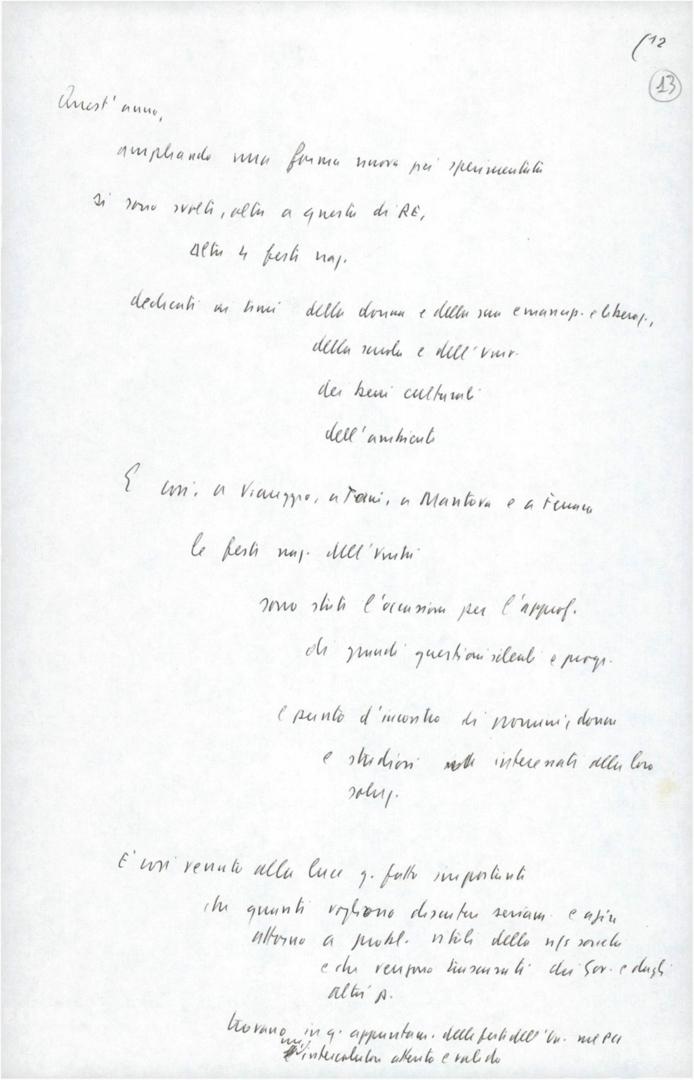 12
13
Quest'anno,
ampliando una forma nuova già sperimentata
si sono svolte, oltre a questa di RE,
altre 4 feste naz.
dedicate ai temi della donna e della sua emancip. e liberaz.,
della scuola e dell'univ.
dei beni culturali
dell'ambiente
E così, a Viareggio, a, a Mantova e a Ferrara
le feste naz. dell'Unità
sono state l'occasione per l'approf.
di grandi questioni ideali e progr.
e punto d'incontro di uomini, donne
e studiosi interessati alla loro
soluz.
È così venuto alla luce q. fatto importante
che quanti vogliono discutere seriam. e agire
attorno a probl. vitali della ns società
e che vengono trascurati dai Gov. e dagli
altri p.
trovano in q. appuntam. delle feste dell'Un. nel PCI
un interlocutore attento e valido